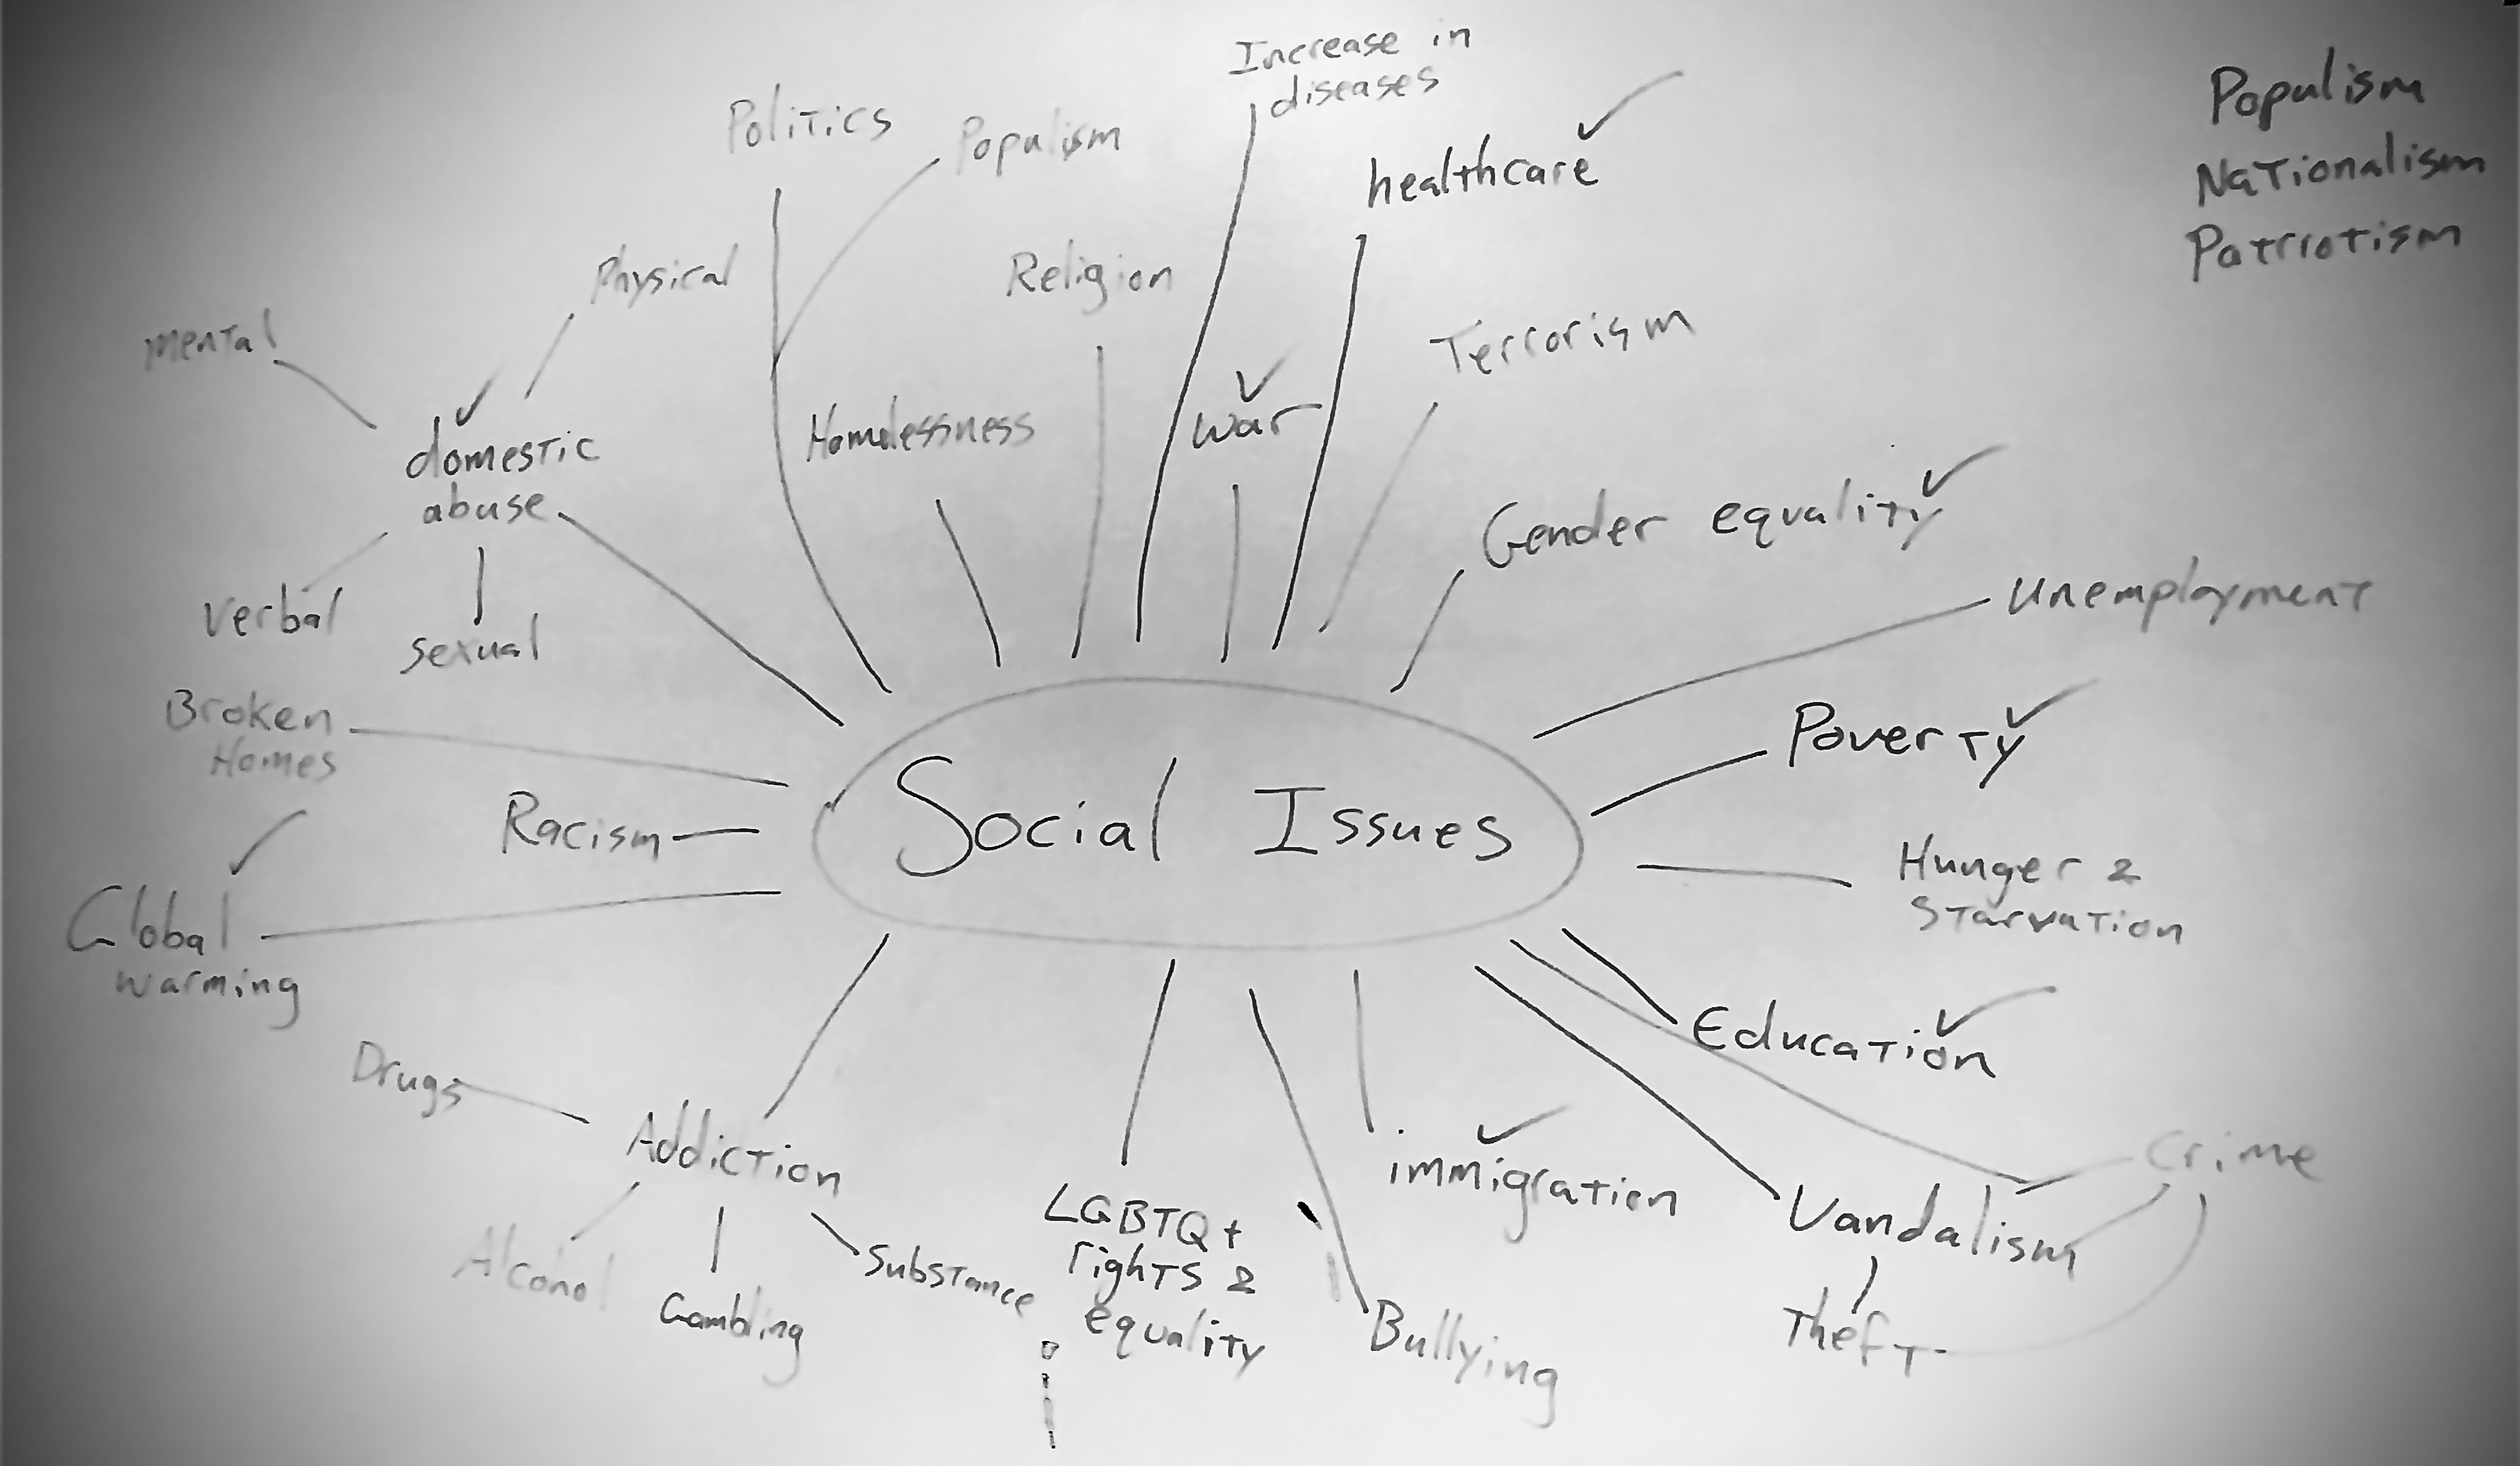 Increase in
diseases
Populism
Nationalism
Patriotism
Politics
Populism
healthcare
Physical
Religion
mental
Terrorism
domestic
abuse
Homelessness
war
Gender equality
Verbal
sexual
unemployment
Broken
Homes
Poverty
Racism
Social Issues
Hunger &
Starvation
Global
warming
Education
Drugs
Addiction
immigration
Crime
LGBTQ+
rights &
equality
Vandalism
Alcohol
Gambling
Substance
Bullying
Theft